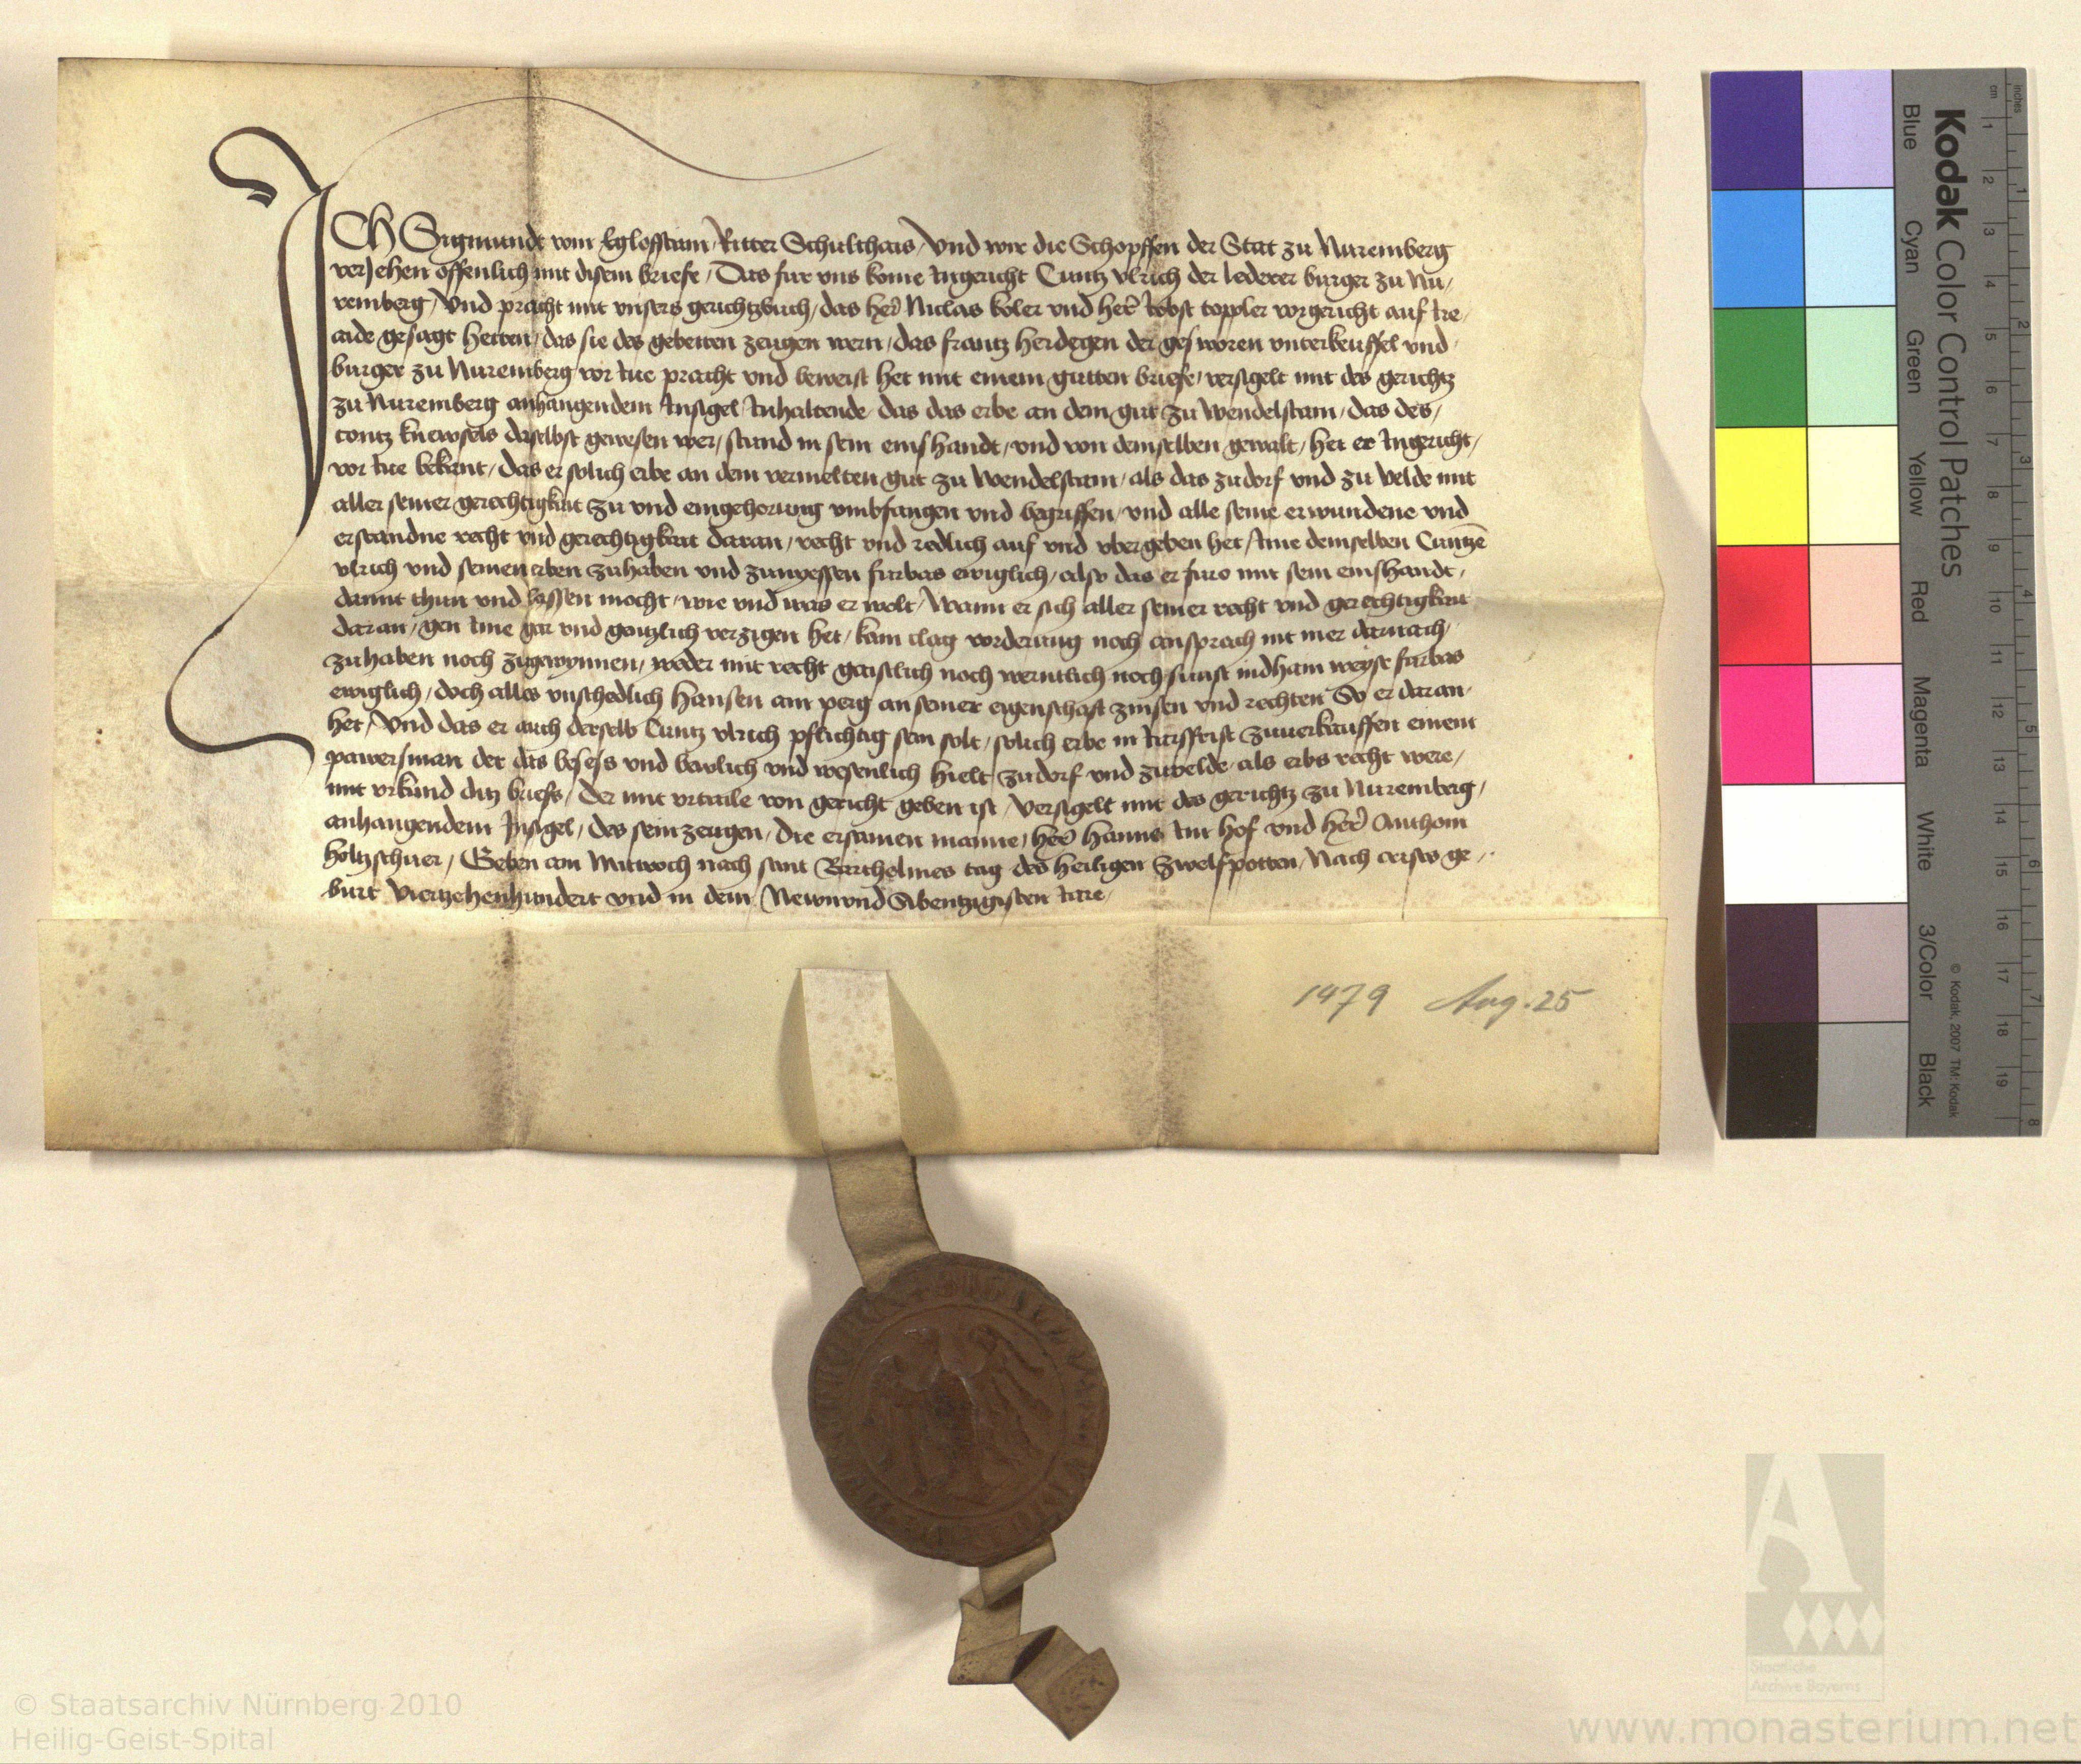 ICh Sigmundt vom Egloffstain Ritter Schulthais, Vnd wir die Schopffen der Stat zu Nuremberg
verJehen offenlich mit disem briefe, Das fur vns kome Ingericht Cuntz Vlrich der lederer burger zu Nu,
remberg, Vnd pracht mit vnsers gerichtzbuch, das her Niclas koler vnd her Jobst toppler vorgericht auf ire,
aide gesagt hetten, das sie des gebetten zeugen wern, das frantz herdegen der gesworen vnterkeuffel vnd
burger zu Nuremberg vor Ine pracht vnd beweist het mit einem gutten briefe, versigelt mit des gerichtz
zu Nuremberg anhangendem Insigel, Inhaltende das das erbe an dem gut zu Wendelstain, das des,
contz knewsels daselbst gewesen wer, stund in sein eins handt, vnd von demselben gewalt, het er Ingericht,
vor Ine bekant, das er solich erbe an dem vermelten gut zu Wendelstain, als das zu dorf vnd zu velde mit
aller seiner gerechtigkait zu vnd eingehorung vmbfangen vnd begriffen, vnd alle seine erwundene vnd
erstandne recht vnd gerechtigkait daran, recht vnd redlich auf vnd vbergeben het, Ime demselben Cuntzē
vlrich vnd seinen erben zuhaben vnd zunyessen furbas ewiglich, also das er furo mit sein einshandt,
damit thun vnd lassen mocht, wie vnd was er wolt, Wann er sich aller seiner recht vnd gerechtigkait
daran, gen Ime gar vnd gentzlich verzigen het, kain clag vorderung noch ansprach nit mer darnach,
zuhaben noch zugewynnen, weder mit recht geistlich noch werntlich noch sunst indhain weyse furbas
ewiglich, doch alles vnschedlich Hansen am perg an seiner eigenschaft zinsen vnd rechten So er daran,
het, Vnd das er auch derselb Cuntz vlrich pflichtig sein solt, solich erbe in Jarsfrist zuuerkauffen einem
pawersman der das besess vnd bewlich vnd wesenlich hielt zudorf vnd zuuelde, als erbs recht were,
mit vrkund ditz briefs, Der mit vrtaile von gericht geben ist, Versigelt mit des gerichtz zu Nuremberg,
anhangendem Insigel, des sein zeugen, die ersamen manne, her Hanns Im hof vnd her Anthoni
holtzschuer, Geben am Mitwoch nach sant Bartholmes tag des heiligen Zwelfpotten, Nach cristo ge,
burt Viertzehenhundert vnd in dem Newnvnd Sibentzigisten Iare,
1479 Aug. 25
Kodak Color Control Patches
Blue Cyan Green Yellow Red Magenta White 3/Color Black
© Kodak, 2007 TM: Kodak
cm 1 2 3 4 5 6 7 8 9 10 11 12 13 14 15 16 17 18 19
inches 1 2 3 4 5 6 7 8
© Staatsarchiv Nürnberg 2010
Heilig-Geist-Spital
Staatliche
Archive Bayerns
www.monasterium.net